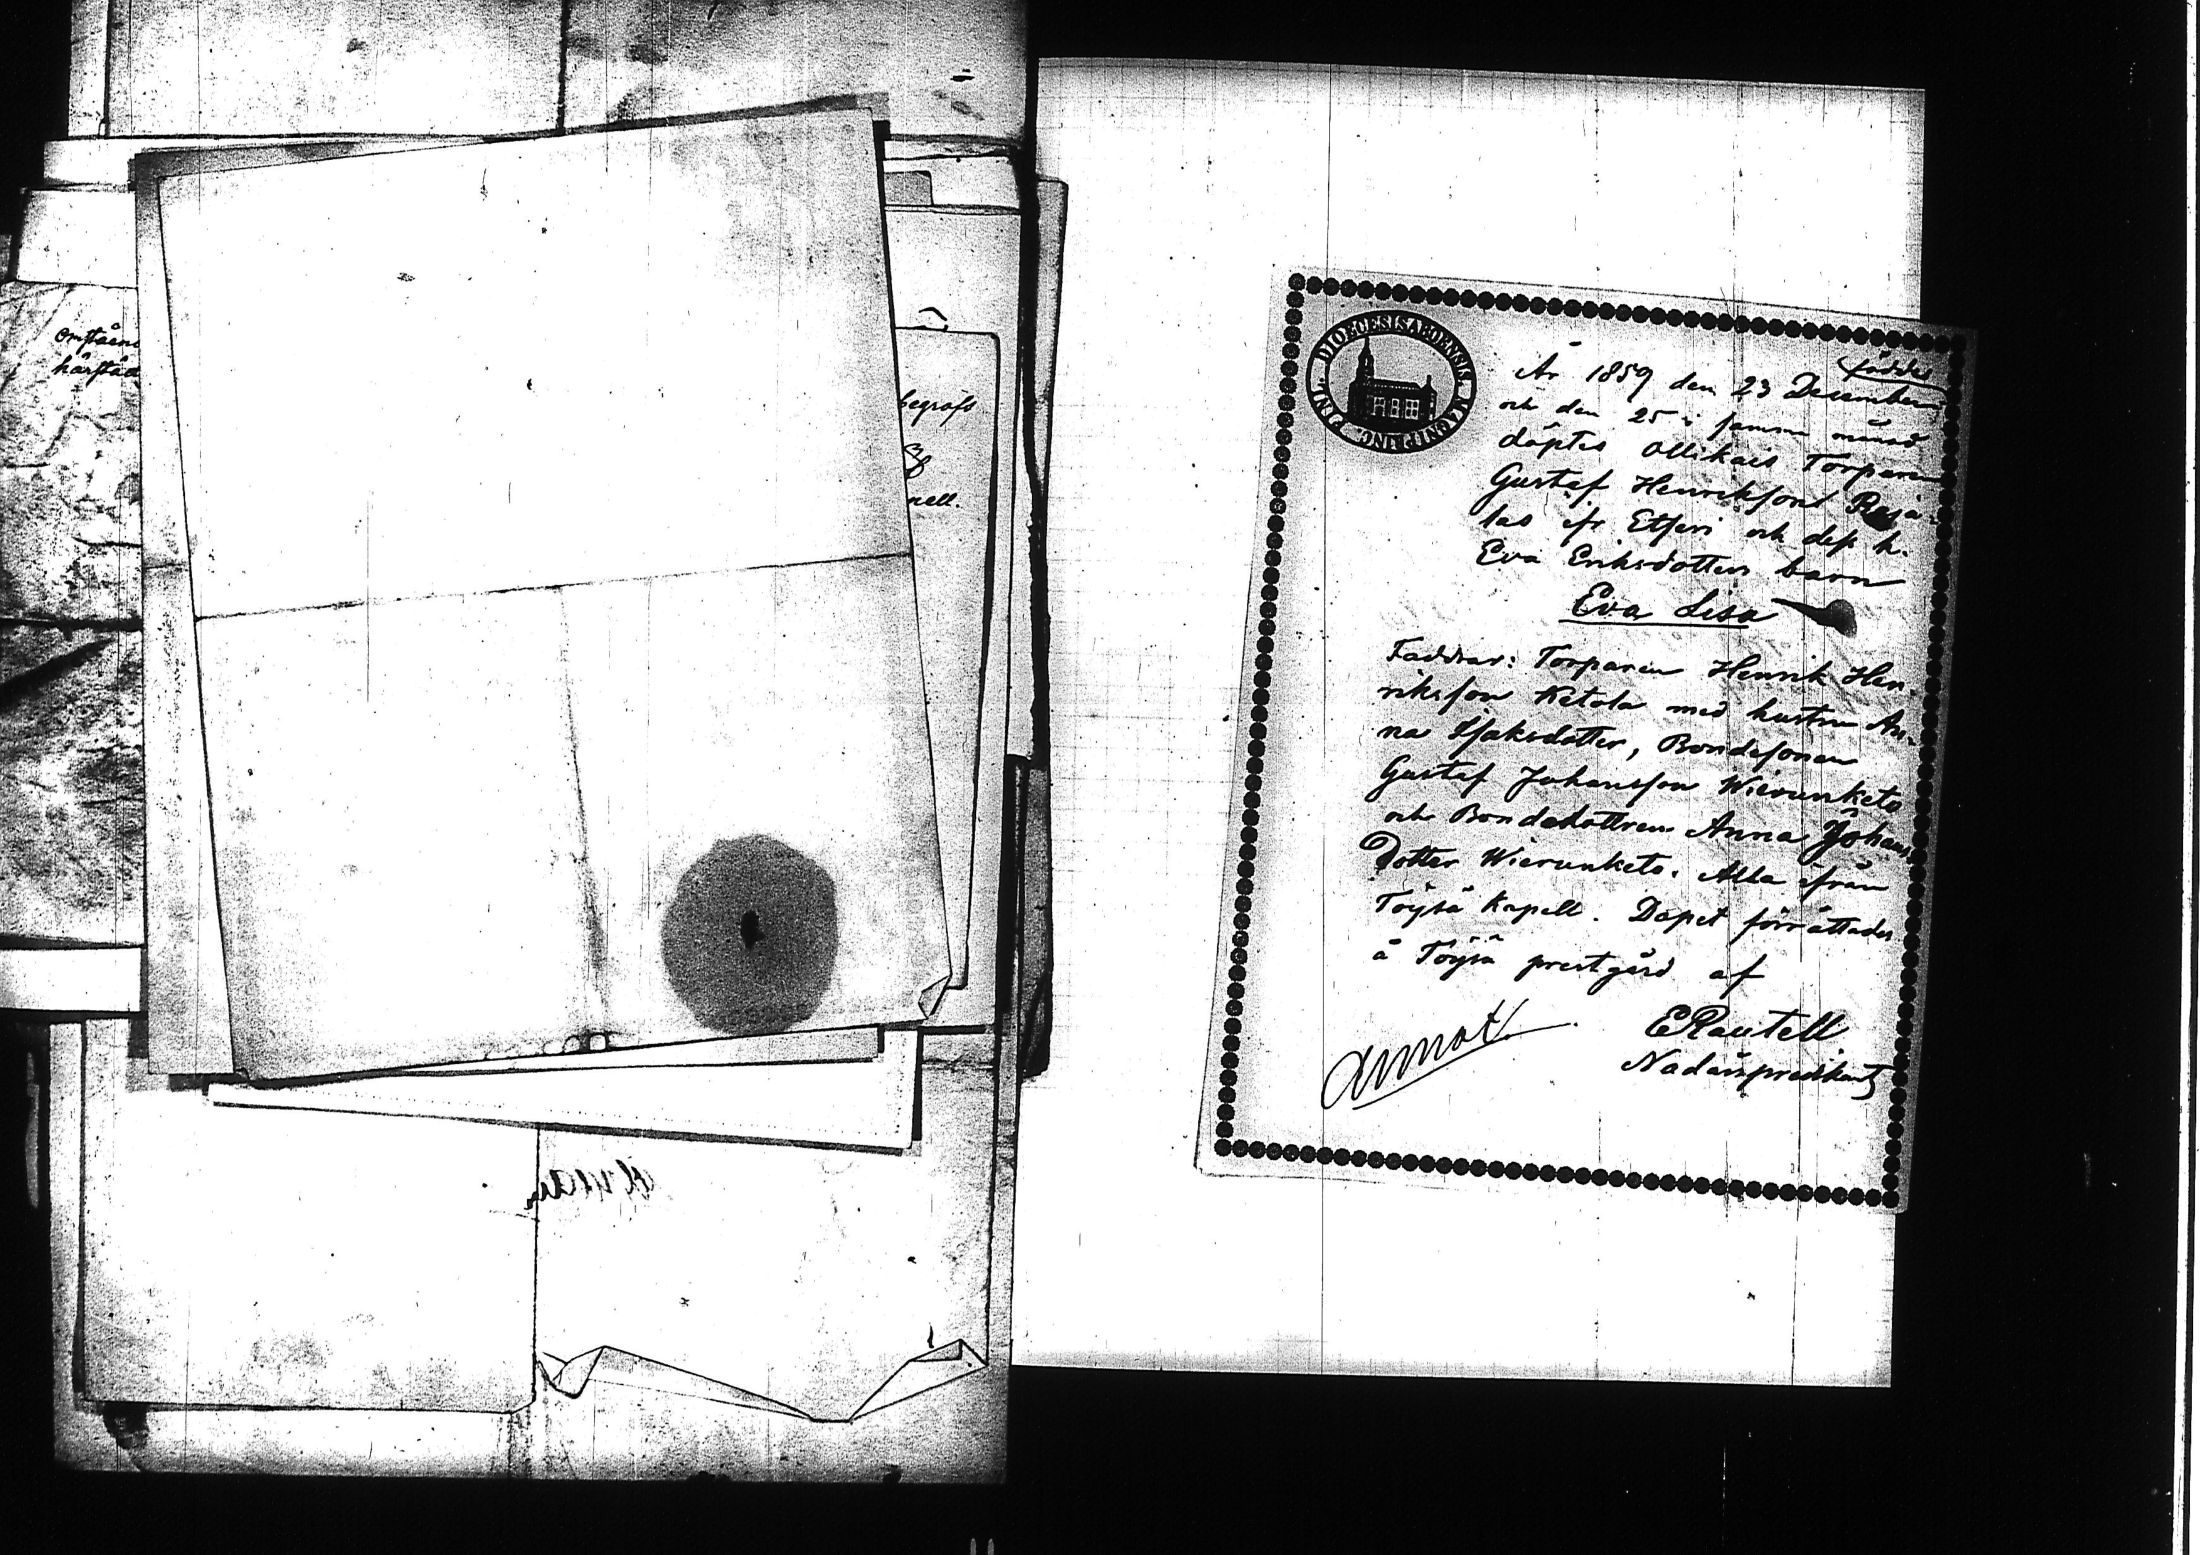 omståen
härstäd
begrafs
nell.
DIOECESIS ABOENSIS MAGNI PRINC. FINL.
föddes
År 1859 den 23 December
och den 25 i samma månad
döptes Ollikais Torparen
Gustaf Henriksson
las ifr Etseri och dess h.
Eva Eriksdotters barn
Eva Lisa
Faddrar: Torparen Henrik Hen-
riksson Ketola med hustru An-
na Isaksdotter, Bondesonen
Gustaf Johansson Wierunketo
och Bondedottren Anna Johans
Dotter Wierunketo. Alla ifrån
Töysä Kapell. Dopet förrättades
å Töysä prestgård af
E Rautell
Nådårspredikant
Annot.